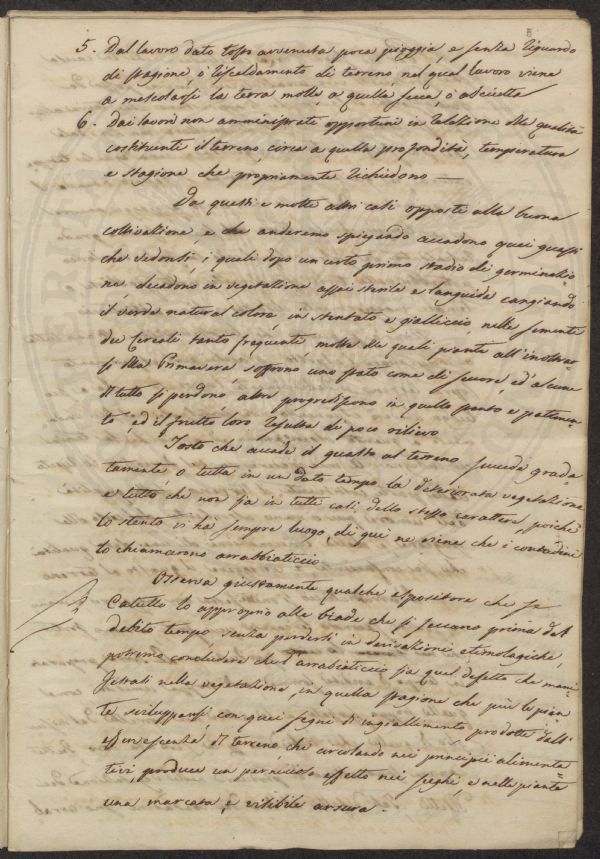 5. Dal lavoro dato tosto avvenuta poca pioggia, e senza riguardo
di stagione, o riscaldamento di terreno, nel qual lavoro viene
a mescolarsi la terra molle, a quella secca, o asciutta
6. Dai lavori non amministrati opportuni in relazione alle qualità
costituenti il terreno, circa a quella profondità, temperatura
e stagione che propriamente richiedono —
Da questi e molti altri casi opposti alla buona
coltivazione, e che anderemo spiegando accadono quei guasti
che vedonsi, i quali dopo un certo primo stadio di germinazio=
ne, decadono in vegetazione assai sterile e languida cangiando
il verde natural colore, in stentato e gialliccio, nelle sementi
dei Cereali tanto frequente, molte delle quali piante all'inoltrar=
si della Primavera, soffrono uno stato come di furore, ed alcune
del tutto si perdono, altre progrediscono in quello pianto e patimen=
to, ed il frutto loro resulta di poco rilievo
Tosto che accade il guasto al terreno succede grada=
tamente, o tutta in un dato tempo la deteriorata vegetazione
e tutto che non sia in tutti casi dello stesso carattere, poiché
lo stento vi ha sempre luogo, di qui ne viene che i contadini
lo chiamarono arrabbiaticcio
Osserva giustamente qualche espositore che se
Catullo lo appropriò alle biade che si seccano prima del
debito tempo senza perdersi in derivazioni etimologiche,
potremo concludere che l'arrabiaticcio sia quel difetto che mani=
festasi nella vegetazione, in quella stagione che più le pian=
te svilupparsi con quei segni di ingiallimento prodotte dall'
efflorescenza del terreno, che circolando nei principii alimenta=
tivi, produce un pernicioso effetto nei seghi, e nelle piante
una marcata, e visibile arsura.